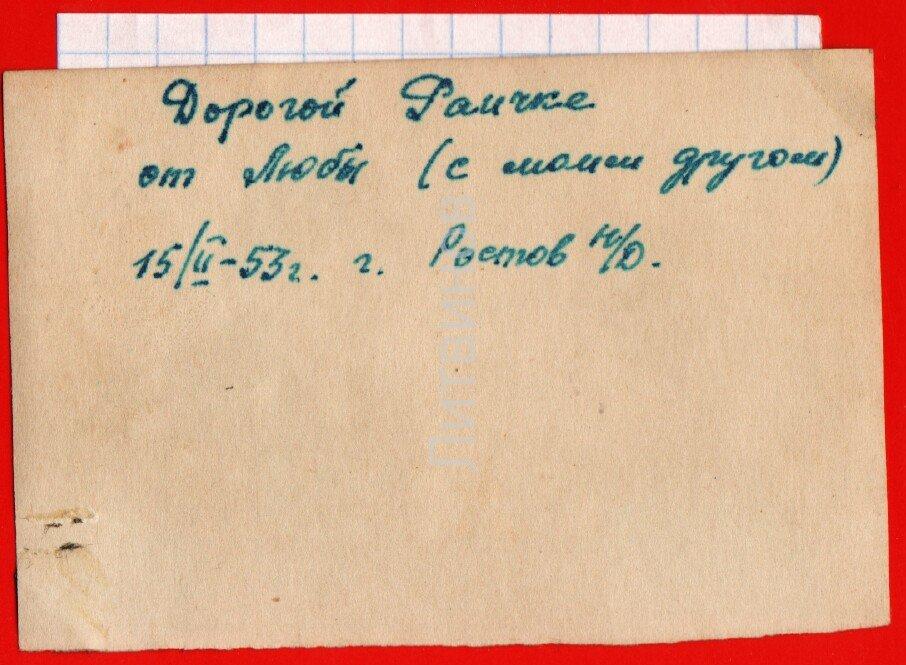 Дорогой Раичке
от Любы (с моим другом)
15/II-53г. г. Ростов н/Д.